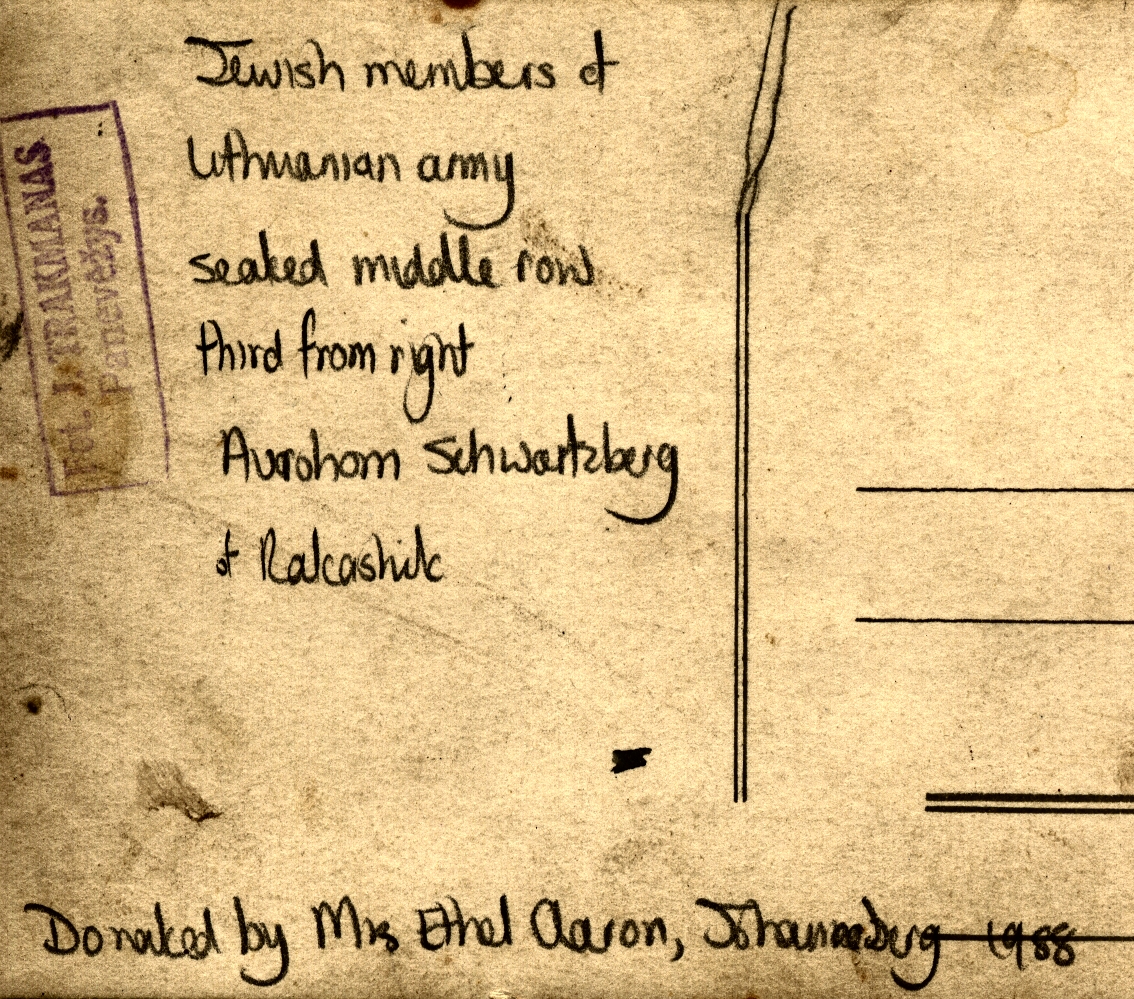 Jewish members of
Lithuanian army
seated middle row
third from right
Avrohom Schwartzberg
of Rakashik
Donated by Mrs Ethel Aaron, Johannesberg 1988
Fot. J. TRAKMANAS
Panevėžys.